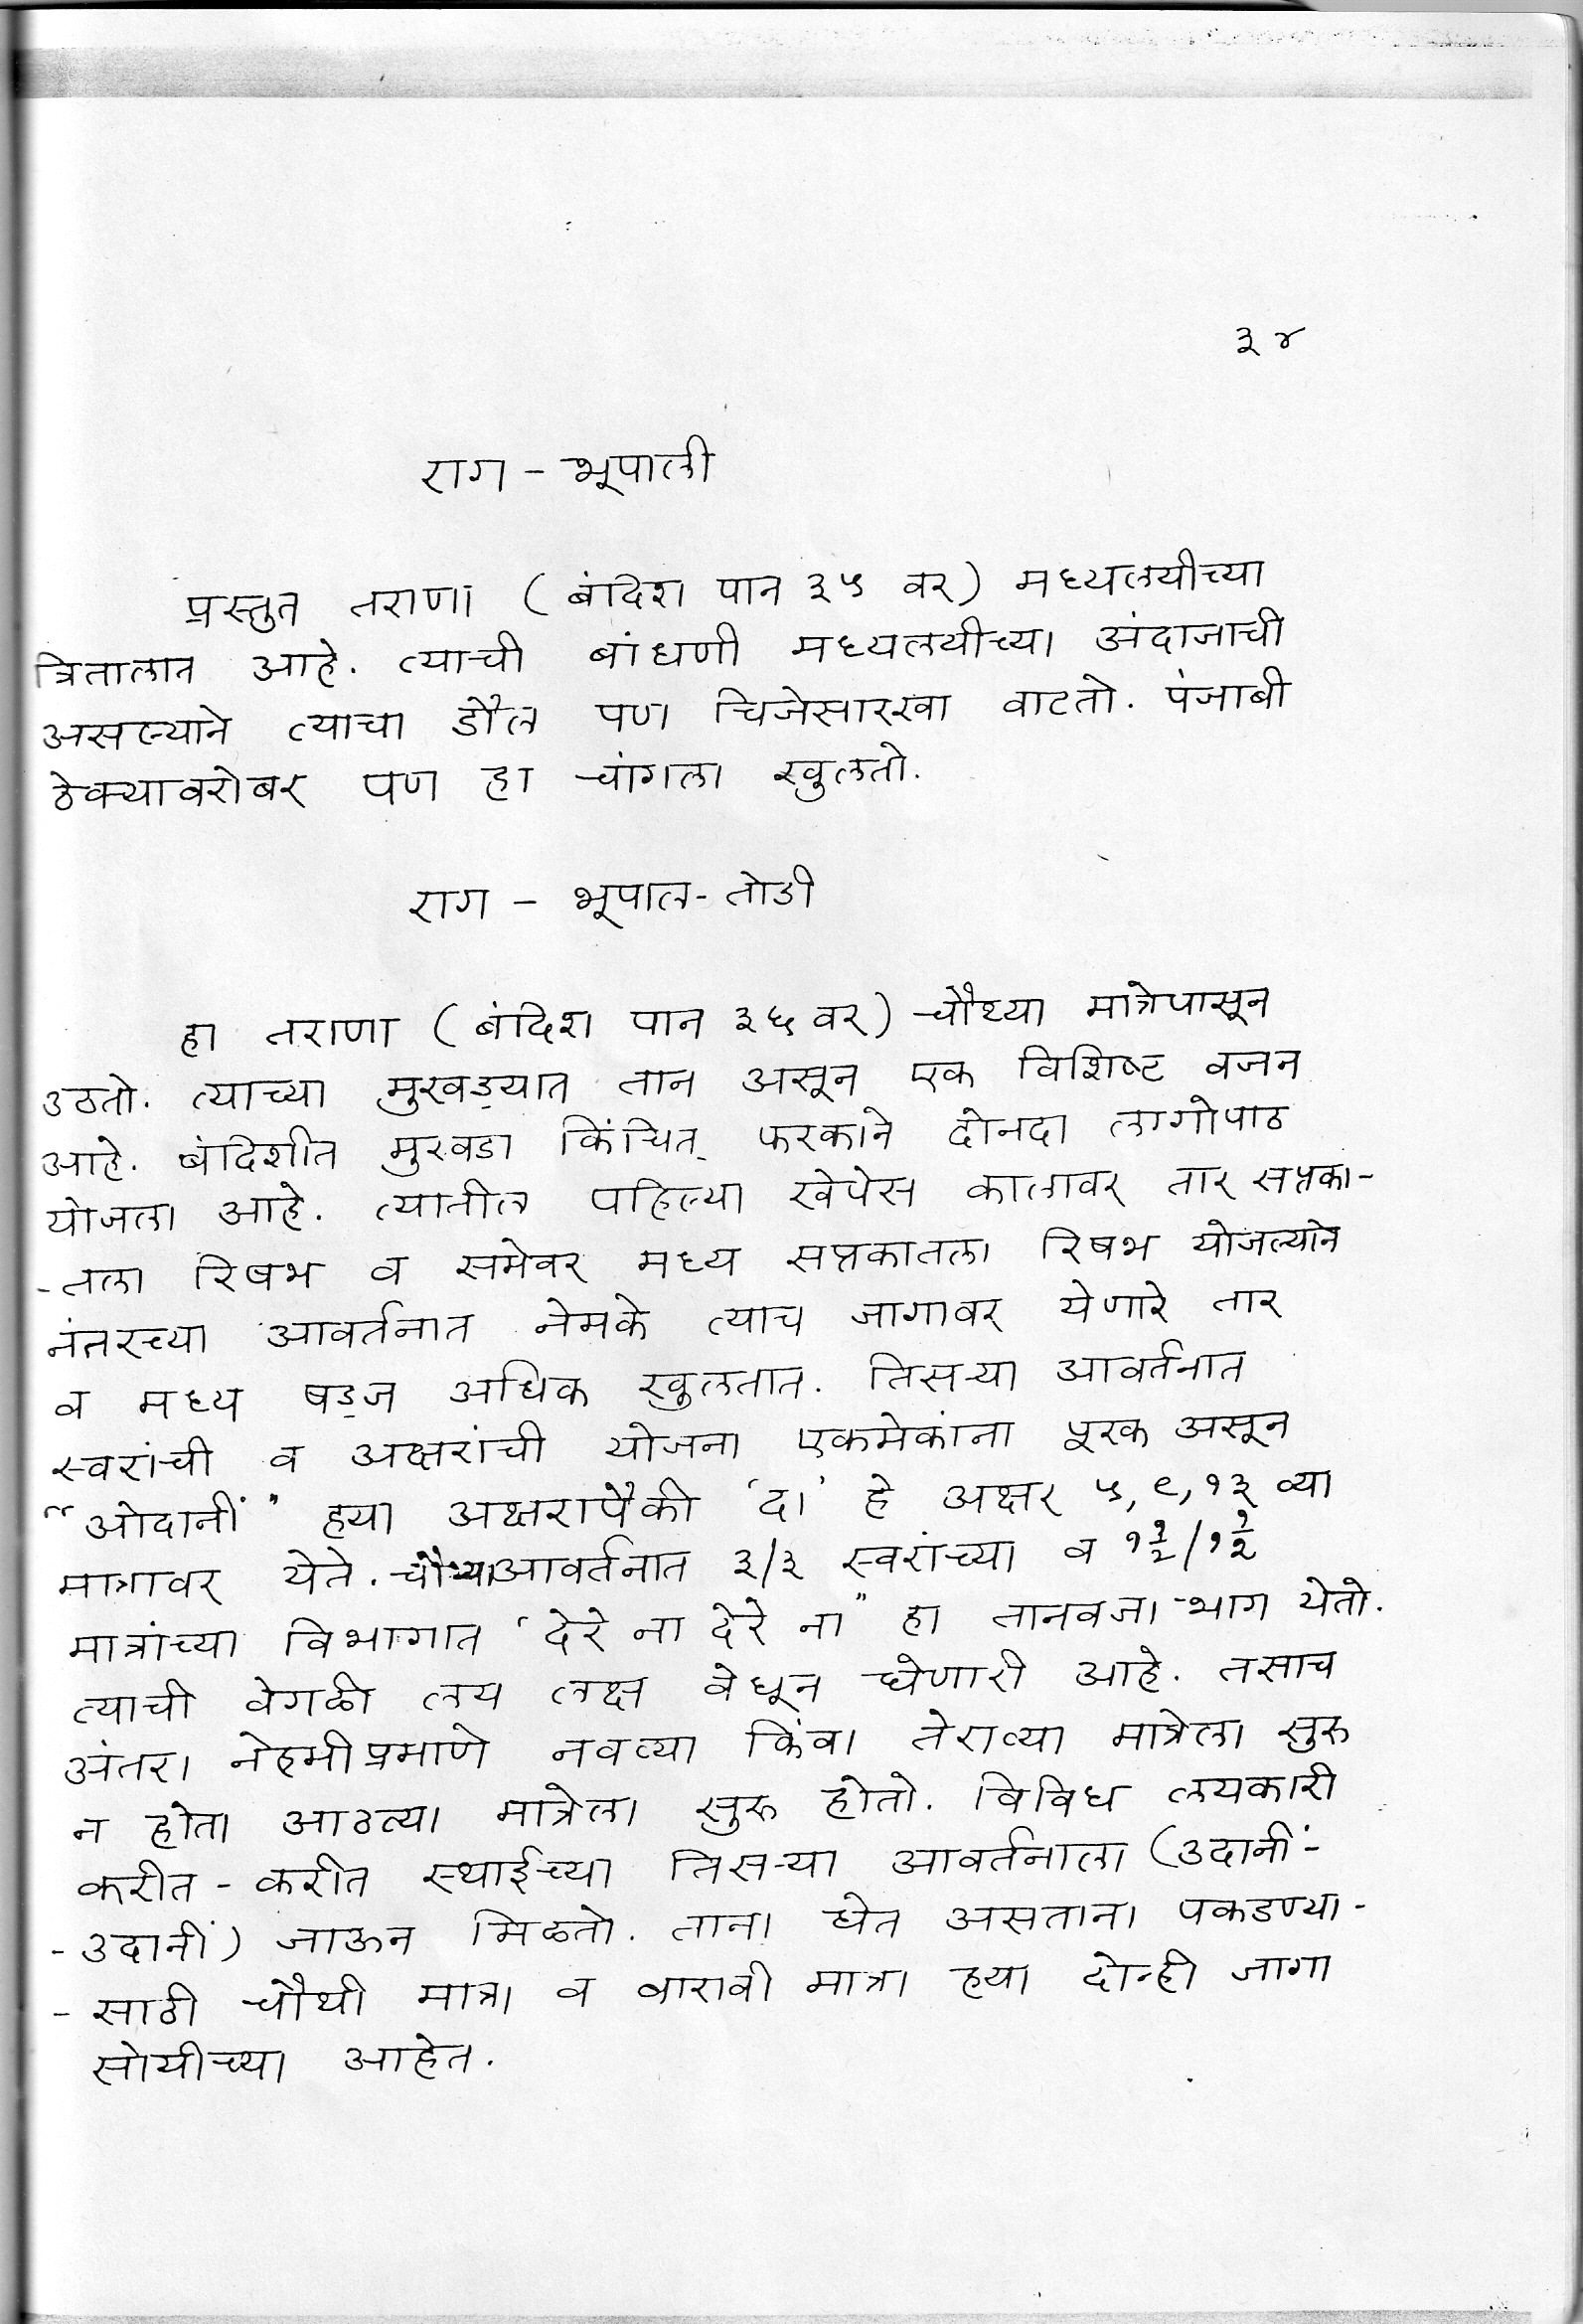 ३४
राग - भूपाली
प्रस्तुत तराणा (बंदिश पान ३५ वर) मध्यलयीच्या
त्रितालात आहे. त्याची बांधणी मध्यलयीच्या अंदाजाची
असल्याने त्याचा डौल पण चिजेसारखा वाटतो. पंजाबी
ठेक्याबरोबर पण हा चांगला खुलतो.
राग - भूपाल-तोडी
हा तराणा (बंदिश पान ३६ वर) चौथ्या मात्रेपासून
उठतो. त्याच्या मुखड्यात तान असून एक विशिष्ट वजन
आहे. बंदिशीत मुखडा किंचित् फरकाने दोनदा लागोपाठ
योजला आहे. त्यातील पहिल्या खेपेस कालावर तार सप्तका-
-तला रिषभ व समेवर मध्य सप्तकातला रिषभ योजल्याने
नंतरच्या आवर्तनात नेमके त्याच जागावर येणारे तार
व मध्य षड्ज अधिक खुलतात. तिसऱ्या आवर्तनात
स्वरांची व अक्षरांची योजना एकमेकांना पूरक असून
"ओदानीं" ह्या अक्षरापैकी 'दा' हे अक्षर ५, ९, १३ व्या
मात्रावर येते. चौथ्या आवर्तनात ३/३ स्वरांच्या व ११/२ / ११/२
मात्रांच्या विभागात 'देरे ना देरे ना" हा तानवजा भाग येतो.
त्याची वेगळी लय लक्ष वेधून घेणारी आहे. तसाच
अंतरा नेहमीप्रमाणे नवव्या किंवा तेराव्या मात्रेला सुरु
न होता आठव्या मात्रेला सुरु होतो. विविध लयकारी
करीत - करीत स्थाईच्या तिसऱ्या आवर्तनाला (उदानीं-
-उदानीं) जाऊन मिळतो. ताना घेत असताना पकडण्या-
-साठी चौथी मात्रा व बारावी मात्रा ह्या दोन्ही जागा
सोयीच्या आहेत.